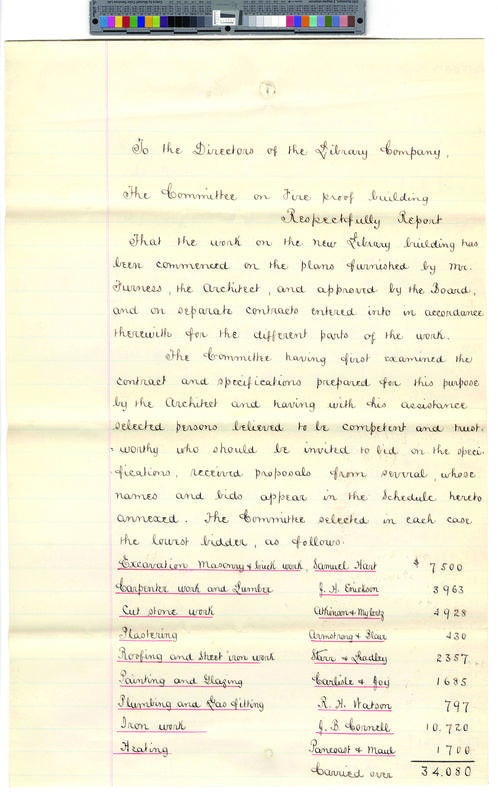 1
To the Directors of the Library Company,
The Committee on Fire proof building
Respectfully Report
That the work on the new Library building has
been commenced on the plans furnished by Mr.
Furness, the Architect, and approved by the Board,
and on separate contracts entered into in accordance
therewith for the different parts of the work.
The Committee having first examined the
contract and specifications prepared for this purpose
by the Architect and having with his assistance
selected persons believed to be competent and trust-
-worthy who should be invited to bid on the speci-
-fications, received proposals from several, whose
names and bids appear in the Schedule hereto
annexed. The Committee selected in each case
the lowest bidder, as follows.
Excavation Masonry & brick work, Samuel Hart $ 7500
Carpenter work and Lumber J. H. Erickson 3963
Cut stone work Atkinson & 4928
Plastering Armstrong & Blair 430
Roofing and Sheet iron work Starr & 2357
Painting and Glazing Carlisle & Joy 1685
Plumbing and Gas fitting R. H. Watson 797
Iron work J. B. Cornell 10,720
Heating Pancoast & Maul 1700
Carried over 34.080